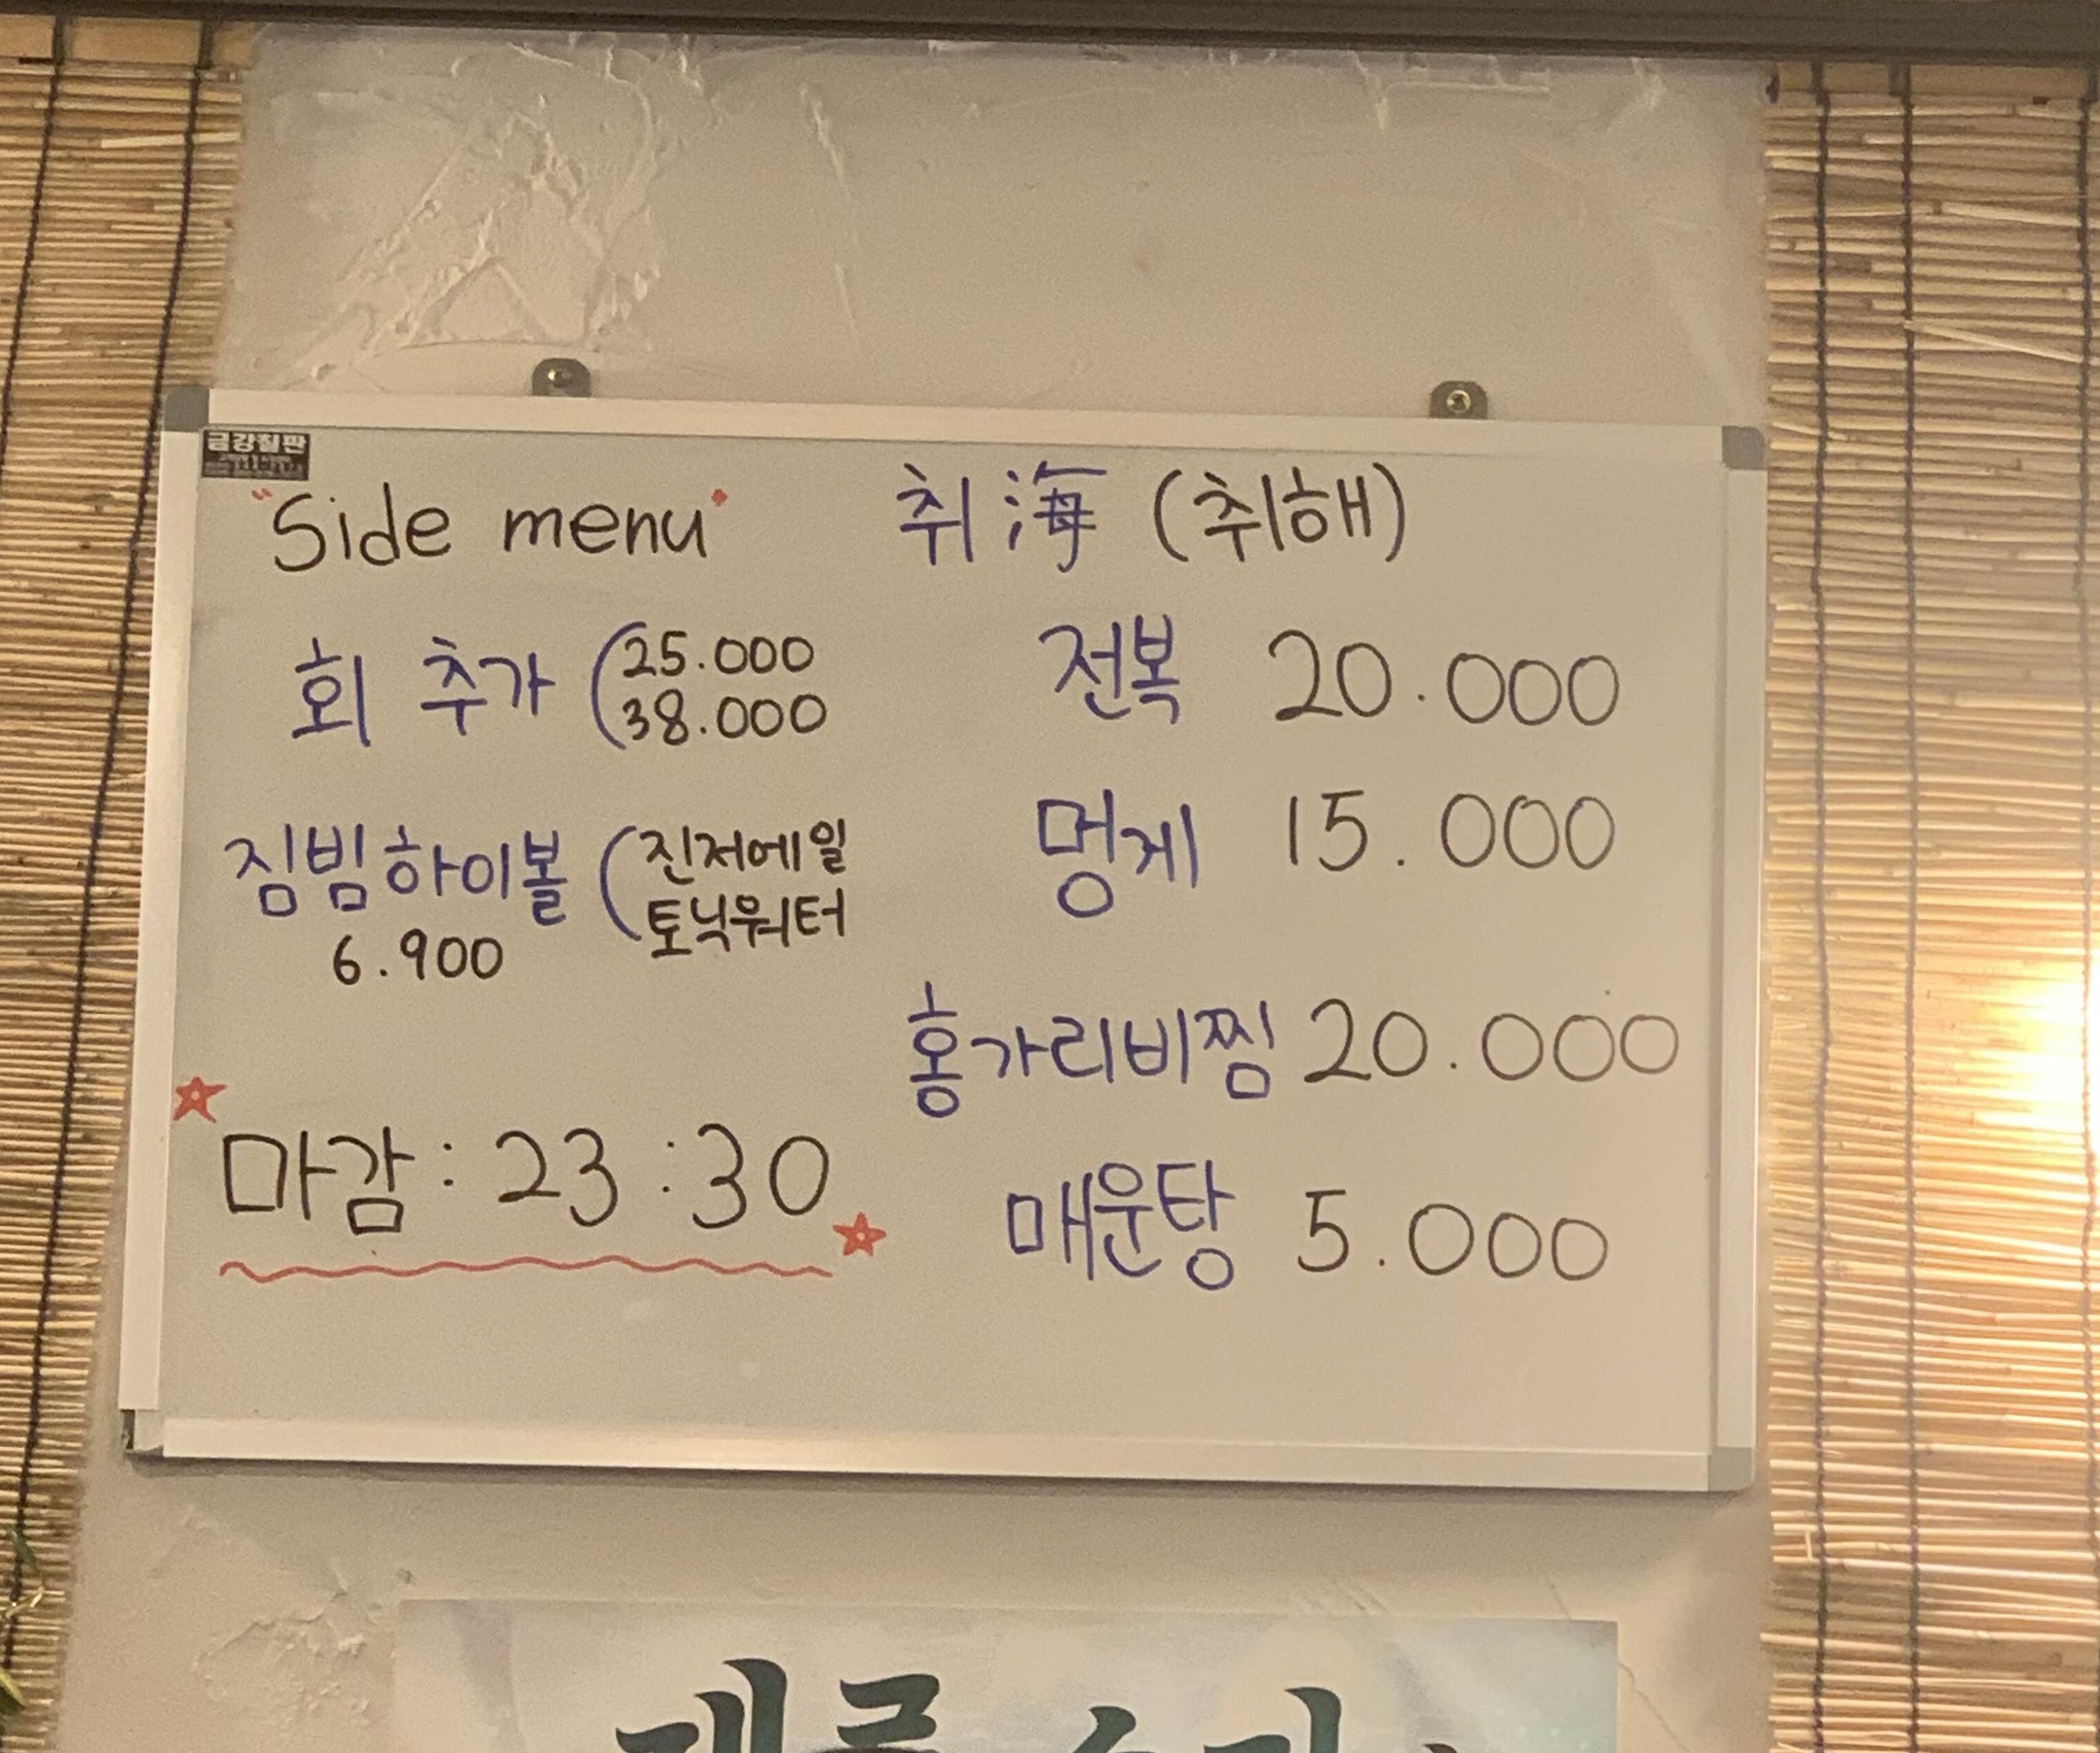 금강칠판
"Side menu"
회 추가 (25.000
38.000
짐빔하이볼 (진저에일
토닉워터
6.900
마감 : 23 : 30
취海 (취해)
전복 20.000
멍게 15.000
홍가리비찜 20.000
매운탕 5.000